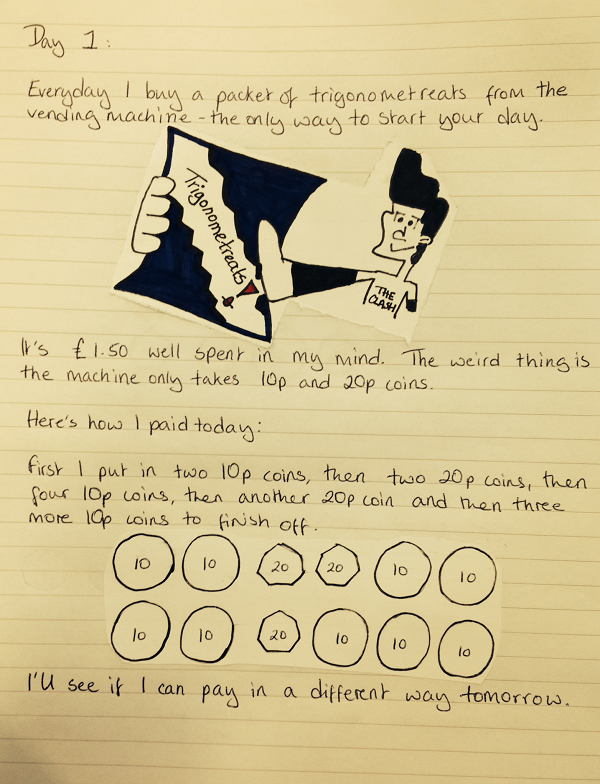 Day 1:
Everyday I buy a packet of trigonometreats from the
vending machine - the only way to start your day.
Trigonometreats
THE
CLASH
It's £1.50 well spent in my mind. The weird thing is
the machine only takes 10p and 20p coins.
Here's how I paid today:
First I put in two 10p coins, then two 20p coins, then
four 10p coins, then another 20p coin and then three
more 10p coins to finish off.
10 10 20 20 10 10
10 10 20 10 10 10
I'll see if I can pay in a different way tomorrow.